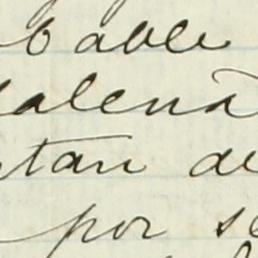 bable
alena
tan de
por se